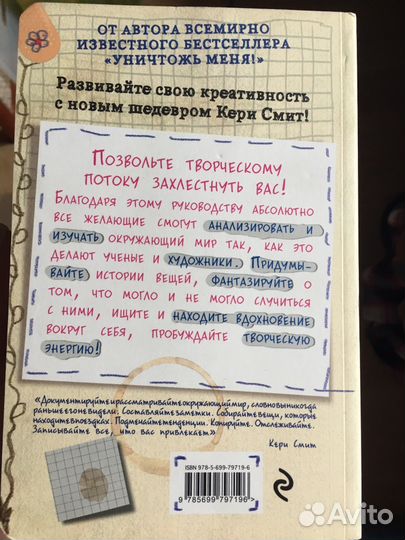 ОТ АВТОРА ВСЕМИРНО
ИЗВЕСТНОГО БЕСТСЕЛЛЕРА
«УНИЧТОЖЬ МЕНЯ!»
Развивайте свою креативность
с новым шедевром Кери Смит!
ПОЗВОЛЬТЕ ТВОРЧЕСКОМУ
ПОТОКУ ЗАХЛЕСТНУТЬ ВАС!
БЛАГОДАРЯ ЭТОМУ РУКОВОДСТВУ АБСОЛЮТНО
ВСЕ ЖЕЛАЮЩИЕ СМОГУТ АНАЛИЗИРОВАТЬ И
ИЗУЧАТЬ ОКРУЖАЮЩИЙ МИР ТАК, КАК ЭТО
ДЕЛАЮТ УЧЕНЫЕ И ХУДОЖНИКИ. ПРИДУМЫ-
ВАЙТЕ ИСТОРИИ ВЕЩЕЙ, ФАНТАЗИРУЙТЕ О
ТОМ, ЧТО МОГЛО И НЕ МОГЛО СЛУЧИТЬСЯ
С НИМИ, ИЩИТЕ И НАХОДИТЕ ВДОХНОВЕНИЕ
ВОКРУГ СЕБЯ, ПРОБУЖДАЙТЕ ТВОРЧЕСКУЮ
ЭНЕРГИЮ!
«Документируйте и рассматривайте окружающий мир, словно вы никогда
раньше его не видели. Составляйте заметки. Собирайте вещи, которые
находите в поездках. Подмечайте тенденции. Копируйте. Отслеживайте.
Записывайте все, что вас привлекает»
Кери Смит
ISBN 978-5-699-79719-6
9 785699 797196 >
Avito